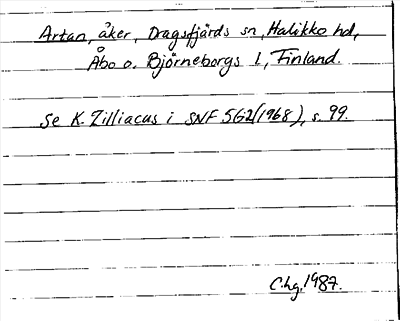 Artan, åker, Dragsfjärds sn, Halikko hd,
Åbo o. Björneborgs l., Finland.
Se K. Zilliacus i SNF 562(1968), s. 99.
C.hg. 1987.